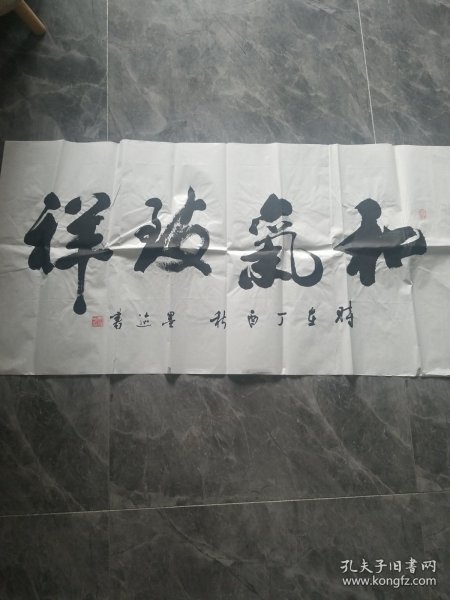 和氣致祥
時在丁酉秋 墨迹書
孔夫子旧书网
www.kongfz.com